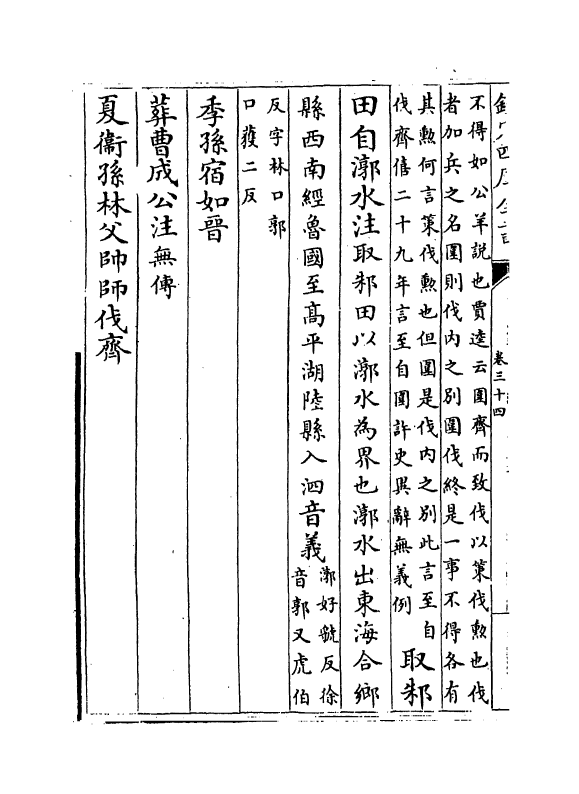 卷三十四
不得如公羊說也賈逵云圍齊而致伐以策伐勲也伐
者加兵之名圍則伐內之別圍伐終是一事不得各有
其勲何言策伐勲也但圍是伐內之別此言至自
伐齊僖二十九年言至自圍許史異辭無義例
取邾
田自漷水注取邾田以漷水為界也漷水出東海合鄉
縣西南經魯國至髙平湖陸縣入泗音義
漷好虢反徐
音郭又虎伯
反字林口郭
口獲二反
季孫宿如晉
葬曹成公注無傳
夏衞孫林父帥師伐齊